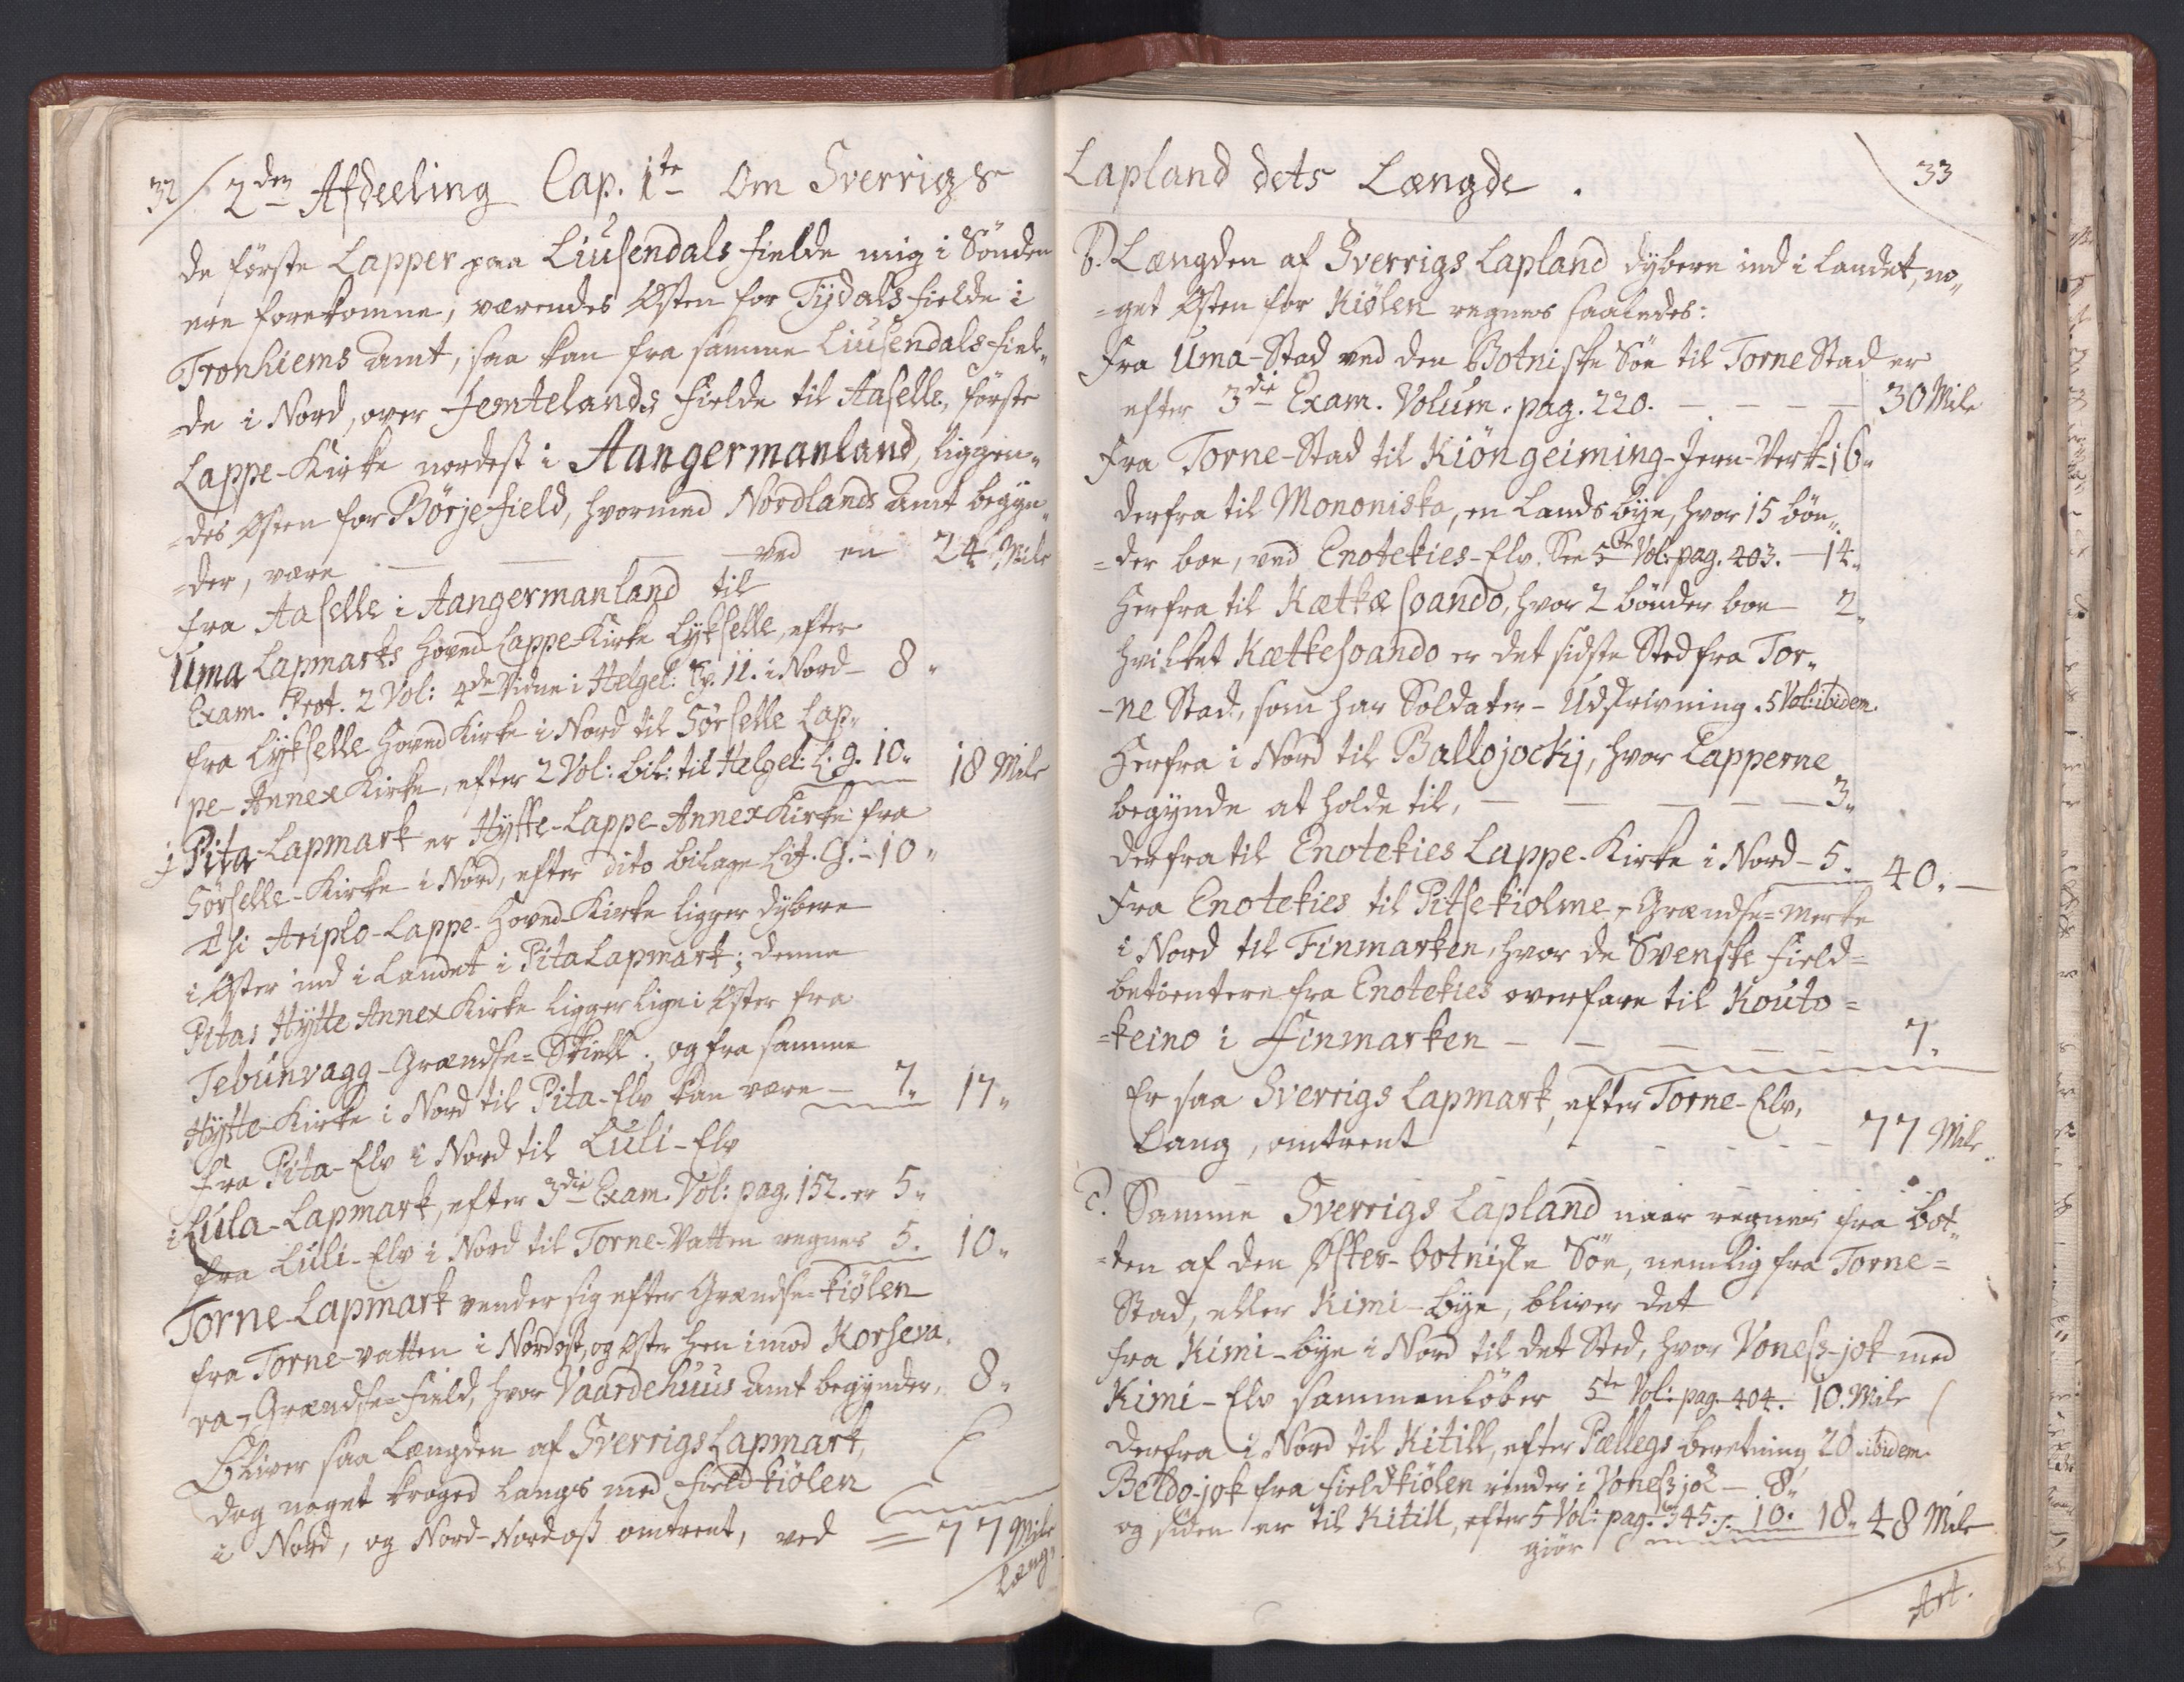 32 / 2den Afdeeling Cap. 1te Om Sverrigs
de förste Lapper paa Liusendals fielde mig i Sönden
ere forekomne, værendes Østen for Tÿdals fielde i
Tronhiems Amt, saa kan fra samme Liusendals-fiel„
„de i Nord, over Jemtelands fielde til Aaselle, förste
Lappe-Kirke nordest i Aangermanland, liggen„
„des Østen for Börjefield, hvormed Nordlands Amt begÿn„
„der, være — — ved en 24 Mile
fra Aaselle i Aangermanland til
Uma Lapmarks Hoved Lappe-Kirke Lÿkselle, efter
Exam. Prot. 2 Vol: 4de Vidne i Helgel: Sp. 11. i Nord – 8„
fra Lÿkselle Hoved Kirke i Nord til Sörselle Lap„
pe-Annex Kirke, efter 2 Vol: bil: til Helgel: L. g. 10„ 18 Mile
j Pita-Lapmark er Hÿtte-Lappe-Annex Kirke fra
Sörselle-Kirke i Nord, efter dito bilage Lit. G. – 10„
Thi Ariplo-Lappe-Hoved-Kirke ligger dÿbere
i Øster ind i Landet i Pita Lapmark; denne
Pitas Hÿtte Annex Kirke ligger lige i Øster fra
Tebunvagg-Grændse-Skiell; og fra samme
Hÿtte-Kirke i Nord til Pita-Elv kan være – 7„ 17„
fra Pita-Elv i Nord til Luli-Elv
i Lula-Lapmark, efter 3die Exam. Vol: pag. 152. er 5„
fra Luli-Elv i Nord til Torne-Vatten regnes 5. 10„
Torne Lapmark vender sig efter Grændse-kiölen
fra Torne-vatten i Nordost, og Øster hen imod Korseva„
ra-Grændse-field, hvor Vaardehuus Amt begÿnder, 8„
Bliver saa Længden af Sverrigs Lapmark,
dog noget kroged langs med field kiölen
i Nord, og Nord-Nordost omtrent, ved = 77 Mile
Lang,
Lapland dets Længde. 33
b. Længden af Sverrigs Lapland dÿbere ind i Landet, no„
„get Østen for Kiölen regnes saaledes:
Fra Uma-Stad ved den Botniske Söe til Torne Stad er
efter 3die Exam. Volum. pag. 220. — — — — 30 Mile
Fra Torne-Stad til Kiöngeiming-Jern-Verk 16„
derfra til Mononiska, en Landsbÿe, hvor 15 bön„
„der boe, ved Enotekies-Elv. See 5te Vol: pag. 403. – 14„
Herfra til Kætkæsoando, hvor 2 bönder boe – 2„
hvilket Kætkesoando er det sidste Sted fra Tor„
„ne Stad, som har Soldater-Udskrivning. 5 Vol: ibidem.
Herfra i Nord til Ballojockj, hvor Lapperne
begÿnde at holde til, — — — — — 3„
derfra til Enotekies Lappe-Kirke i Nord – 5. 40. —
Fra Enotekies til Pitsekiolme-Grændse-Merke
i Nord til Finmarken, hvor de Svenske field-
betientere fra Enotekies overfare til Kouto-
-keino i Finmarken – – – – – 7.
Er saa Sverrigs Lapmark, efter Torne-Elv,
Lang, omtrent - - - - - 77 Mile.
c. Samme Sverrigs Lapland naar regnes fra Bot„
„ten af den Øster-botniske Söe, nemlig fra Torne-
Stad, eller Kimi-bÿe, bliver det
fra Kimi-bÿe i Nord til det Sted, hvor Voness-jok med
Kimi-Elv sammenlöber 5te Vol: pag. 404. 10. Mile
Derfra i Nord til Kitill, efter Pællegs beretning 20 ibidem.
Beldo-jok fra field kiölen rinder i Voness jok – 8„
og siden er til Kitill, efter 5 Vol: pag. 345. 10. 18„ 48 Mile
giör
Art.